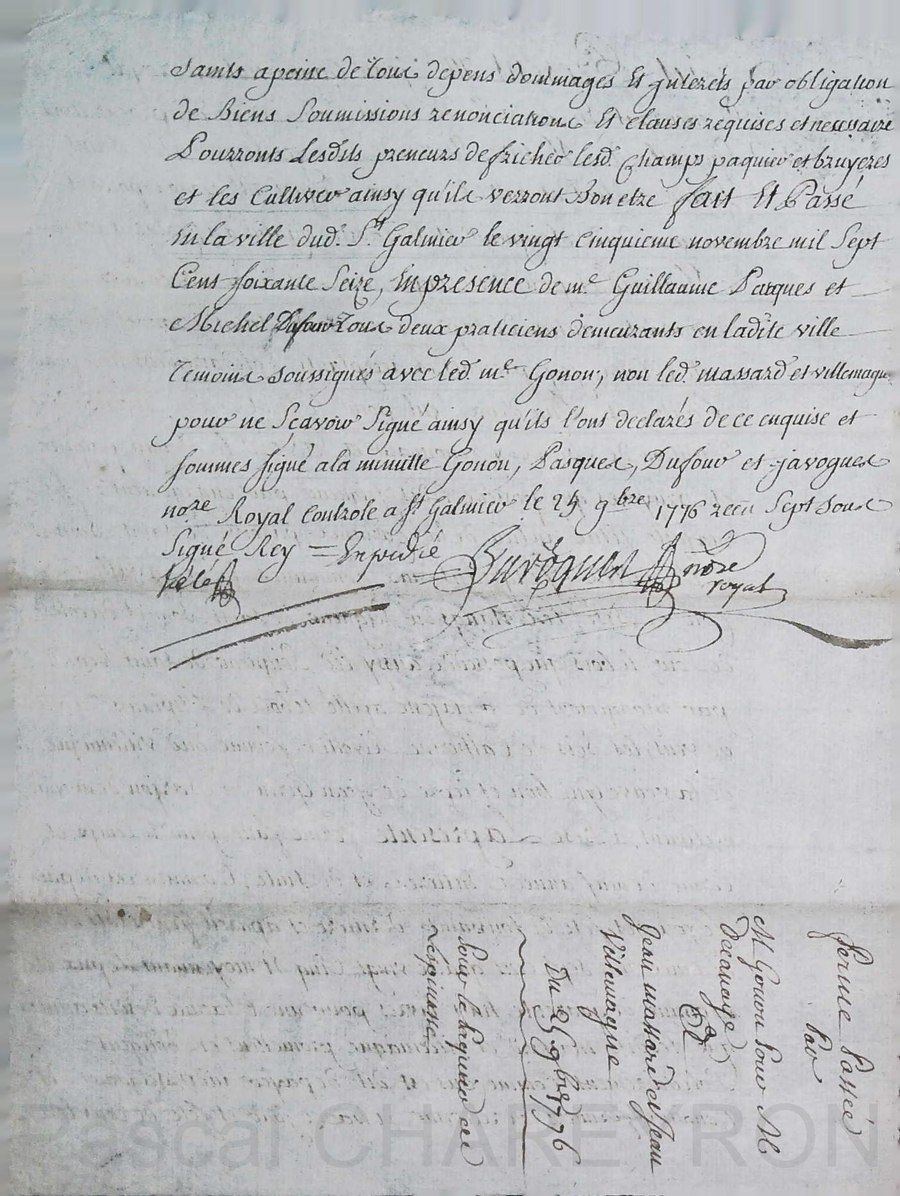 saints a peine de tous depens dommages Et jnterets par obligation
de Biens Soumissions renonciations Et clauses requises et necessaire
Pourronts Lesdits preneurs defricher lesd. Champs paquier et bruyeres
et les Cultiver ainsy qu'ils verront Bon etre fait Et Passé
En la ville dud. St. Galmier le vingt Cinquieme novembre mil Sept
Cent soixante Seize, En presence de me Guillaume Pasques et
Michel Dufour Tous deux praticiens demeurants en ladite ville
Temoins soussignés avec led. me Gonon, non led. massard et villemagne
pour ne Scavoir Signé ainsy qu'ils l'ont declarés de ce enquise et
sommes signé a la minutte Gonon, Pasques, Dufour et javogues
nore Royal Controle a St Galmier le 25 9bre 1776 reçu Sept sous
Signé Rey = Expedié
Javogues nore
royal
ferme Passée
Par
M Gonon Pour M
Jean massard et Jean
Villemagne
Du 25 9bre 1776
Pour le paquier de